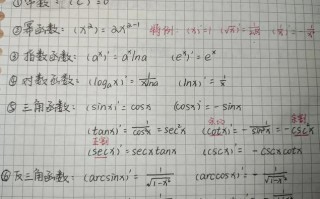 ①常函数: (C)'=0
②幂函数: (x²)'=2x²⁻¹ 特例 (x)'=1 (√x)'=1/2√x (1/x)'=-1/x²
③指数函数: (aˣ)'=aˣlna (eˣ)'=eˣ
④对数函数: (logₐx)'=1/xlna (lnx)'=1/x
⑤三角函数: (sinx)'=cosx (cosx)'=-sinx
(tanx)'=1/cos²x=sec²x (cotx)'=-1/sin²x=-csc²x
(secx)'=secxtanx (cscx)'=-cscxcotx
⑥反三角函数: (arcsinx)'=1/√1-x² (arccosx)'=-1/√1-x²